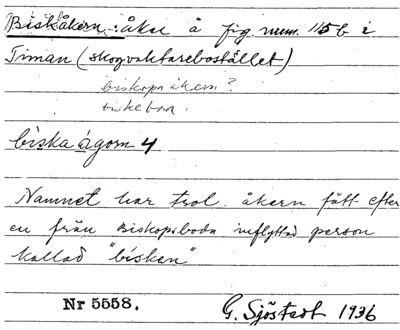 Biskåkern : åker å fig. num. 115 b i
Timan (skogvaktarebostället)
biskopsåkern?
biska ágorn 4
Namnet har trol. åkern fått efter
en från Biskopsboda inflyttad person
kallad "bisken"
Nr 5558.
G. Sjöstedt 1936